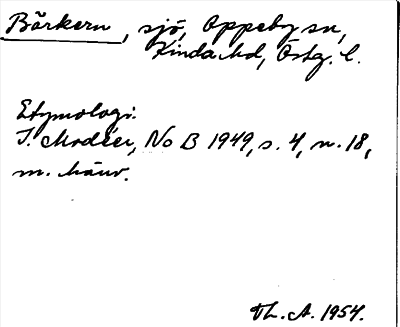 Bärkern, sjö, Oppeby sn,
Kinda hd, Östg. l.
Etymologi.
I. Modéer, No B 1949, s. 4, n. 18,
m. hänv.
Th. A. 1954.